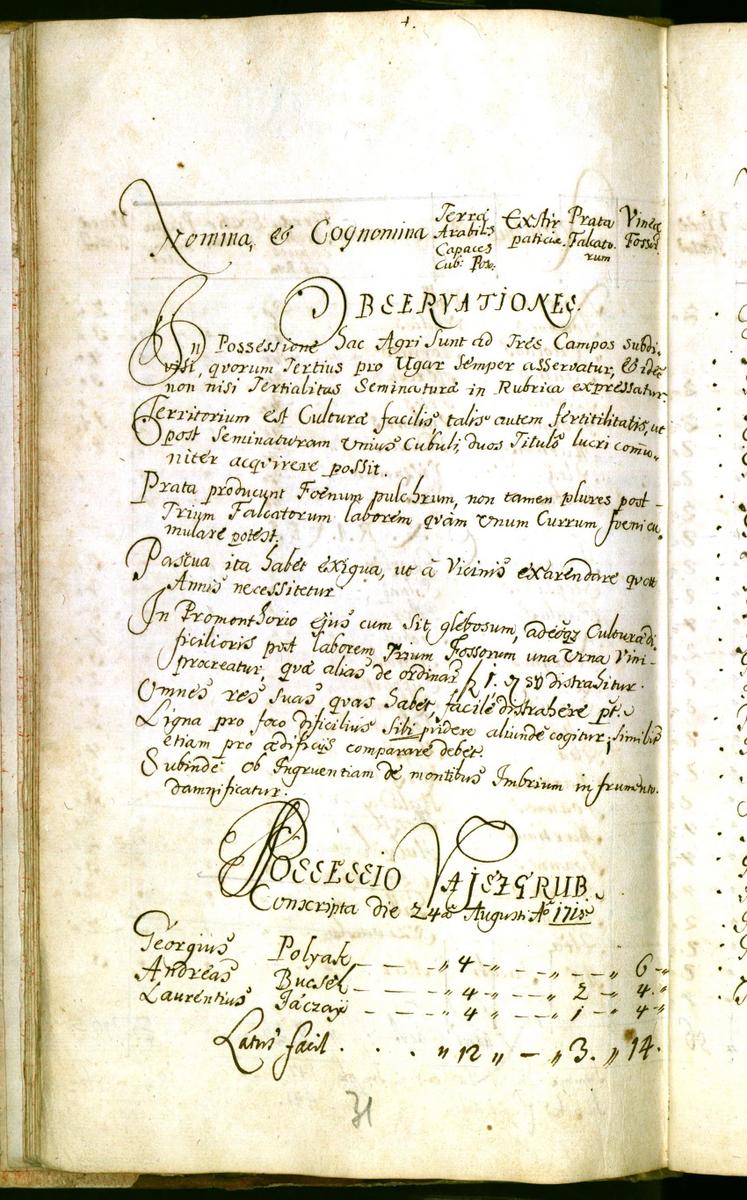 4.
Nomina, & Cognomina Terræ Arabilis Capaces Cub: Pos: Exstirpaticiæ. Prata Falcatorum Vineæ Fossor.
OBSERVATIONES.
In Possessione hac Agri sunt ad Tres Campos subdi-
visi, quorum Tertius pro Ugar semper asservatur, & ideo
non nisi Tertialitas Seminaturæ in Rubrica expressatur.
Territorium est Culturæ facilis, talis autem fertitilitatis, ut
post Seminaturam Unius Cubuli, duos Titulo lucri comu-
niter acqvirere possit.
Prata producunt Foenum pulchrum, non tamen plures post
Trium Falcatorum laborem quàm Unum Currum foeni cu
mulare potest.
Pascua ita habet exigua, ut à Vicinis exarendare quot
Annis necessitetur.
In Promonthorio ejus cum sit glebosum, adeoqz Culturæ di
ficilioris post laborem Trium Fossorum una Urna Vini
procreatur, quæ alias de ordinar 1. distrahitur.
Omnes res suas, quas habet, facile distrahere pt.
Ligna pro foco dificilius sibi pvidere aliunde cogitur, similit
etiam pro ædificiis comparare debet.
Subinde ob Ingruentiam de montibus Imbrium in frumento.
damnificatur.
POSSESSIO VAJSZGRUB.
Conscripta die 24a Augusti Ao 1715
Georgius Polyak — — „ 4 „ — „ — „ 6 „
Andreas Bucsek — — „ 4 „ — „ 2 „ 4 „
Laurentius Jáczay — — „ 4 „ — „ 1 „ 4 „
Latus facit . . . „ 12 „ — „ 3. „ 14.
31